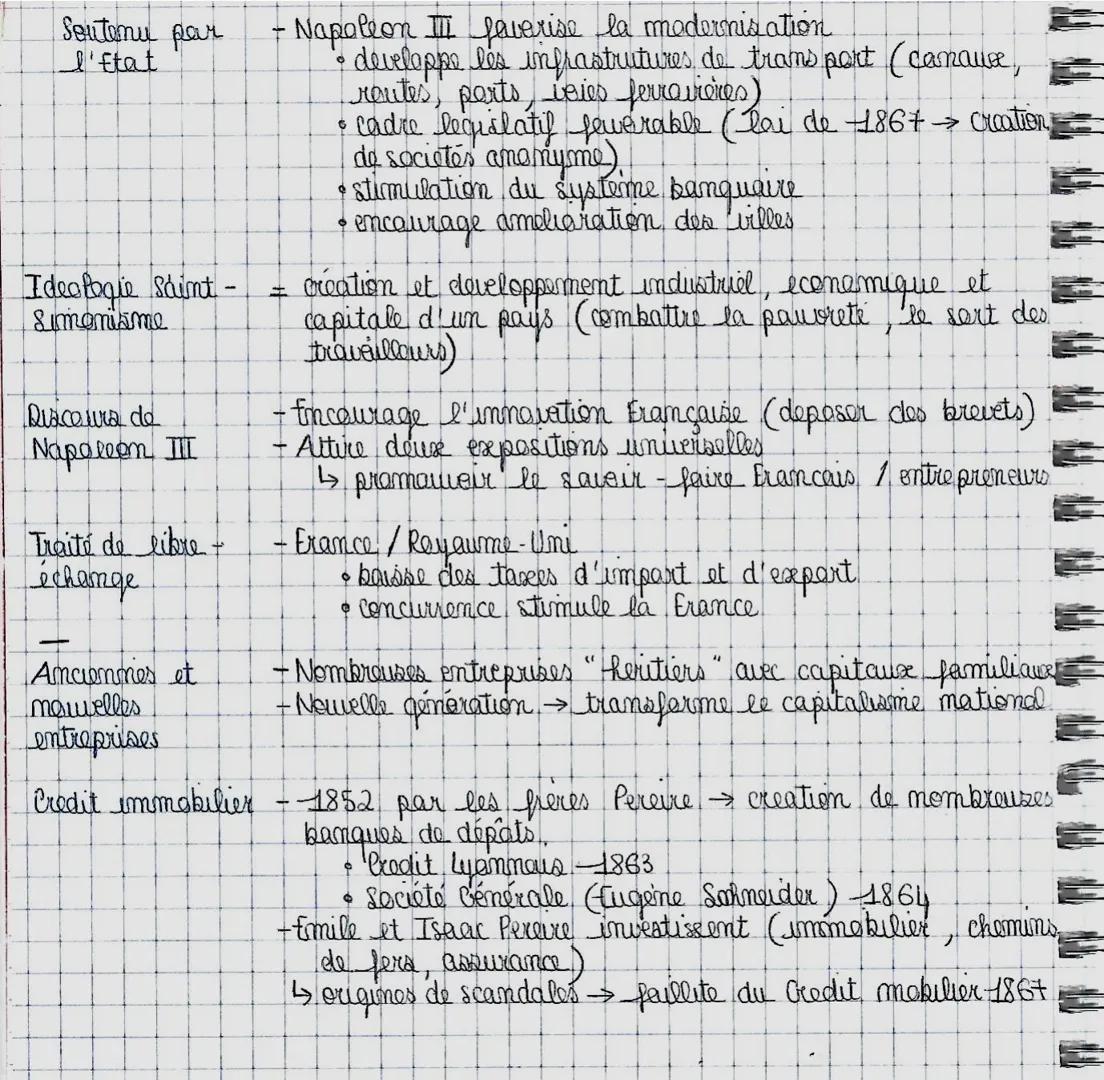 Soutenu par - Napoléon III favorise la modernisation
l'Etat • developpe les infrastrutures de transport (canaux,
routes, ports, voies ferrovières)
• cadre legislatif favorable (loi de 1867 → creation
de societés anonyme)
• stimulation du système banquaire
• encourage amelioration des villes
Ideologie Saint - = création et developpement industriel, economique et
Simonisme capitale d'un pays (combattre la pauvreté, le sort des
travailleurs)
Discours de - Encourage l'innovation Française (deposer des brevets)
Napoleon III - Attire deux expositions universelles
↳ promouvoir le savoir-faire Francais / entrepreneurs
Traité de libre - - France / Royaume-Uni
échange • baisse des taxes d'import et d'export
• concurrence stimule la France
Anciennes et - Nombreuses entreprises "heritiers" avec capitaux familiaux
nouvelles - Nouvelle génération → transforme le capitalisme national
entreprises
Credit immobilier - 1852 par les frères Pereire → creation de nombreuzes
banques de dépots.
• Credit Lyonnais 1863
• Société Générale (Eugène Schneider) 1864
- Emile et Isaac Pereire investissent (immobilier, chemins
de fers, assurance)
↳ origines de scandales → faillite du Credit mobilier 1867